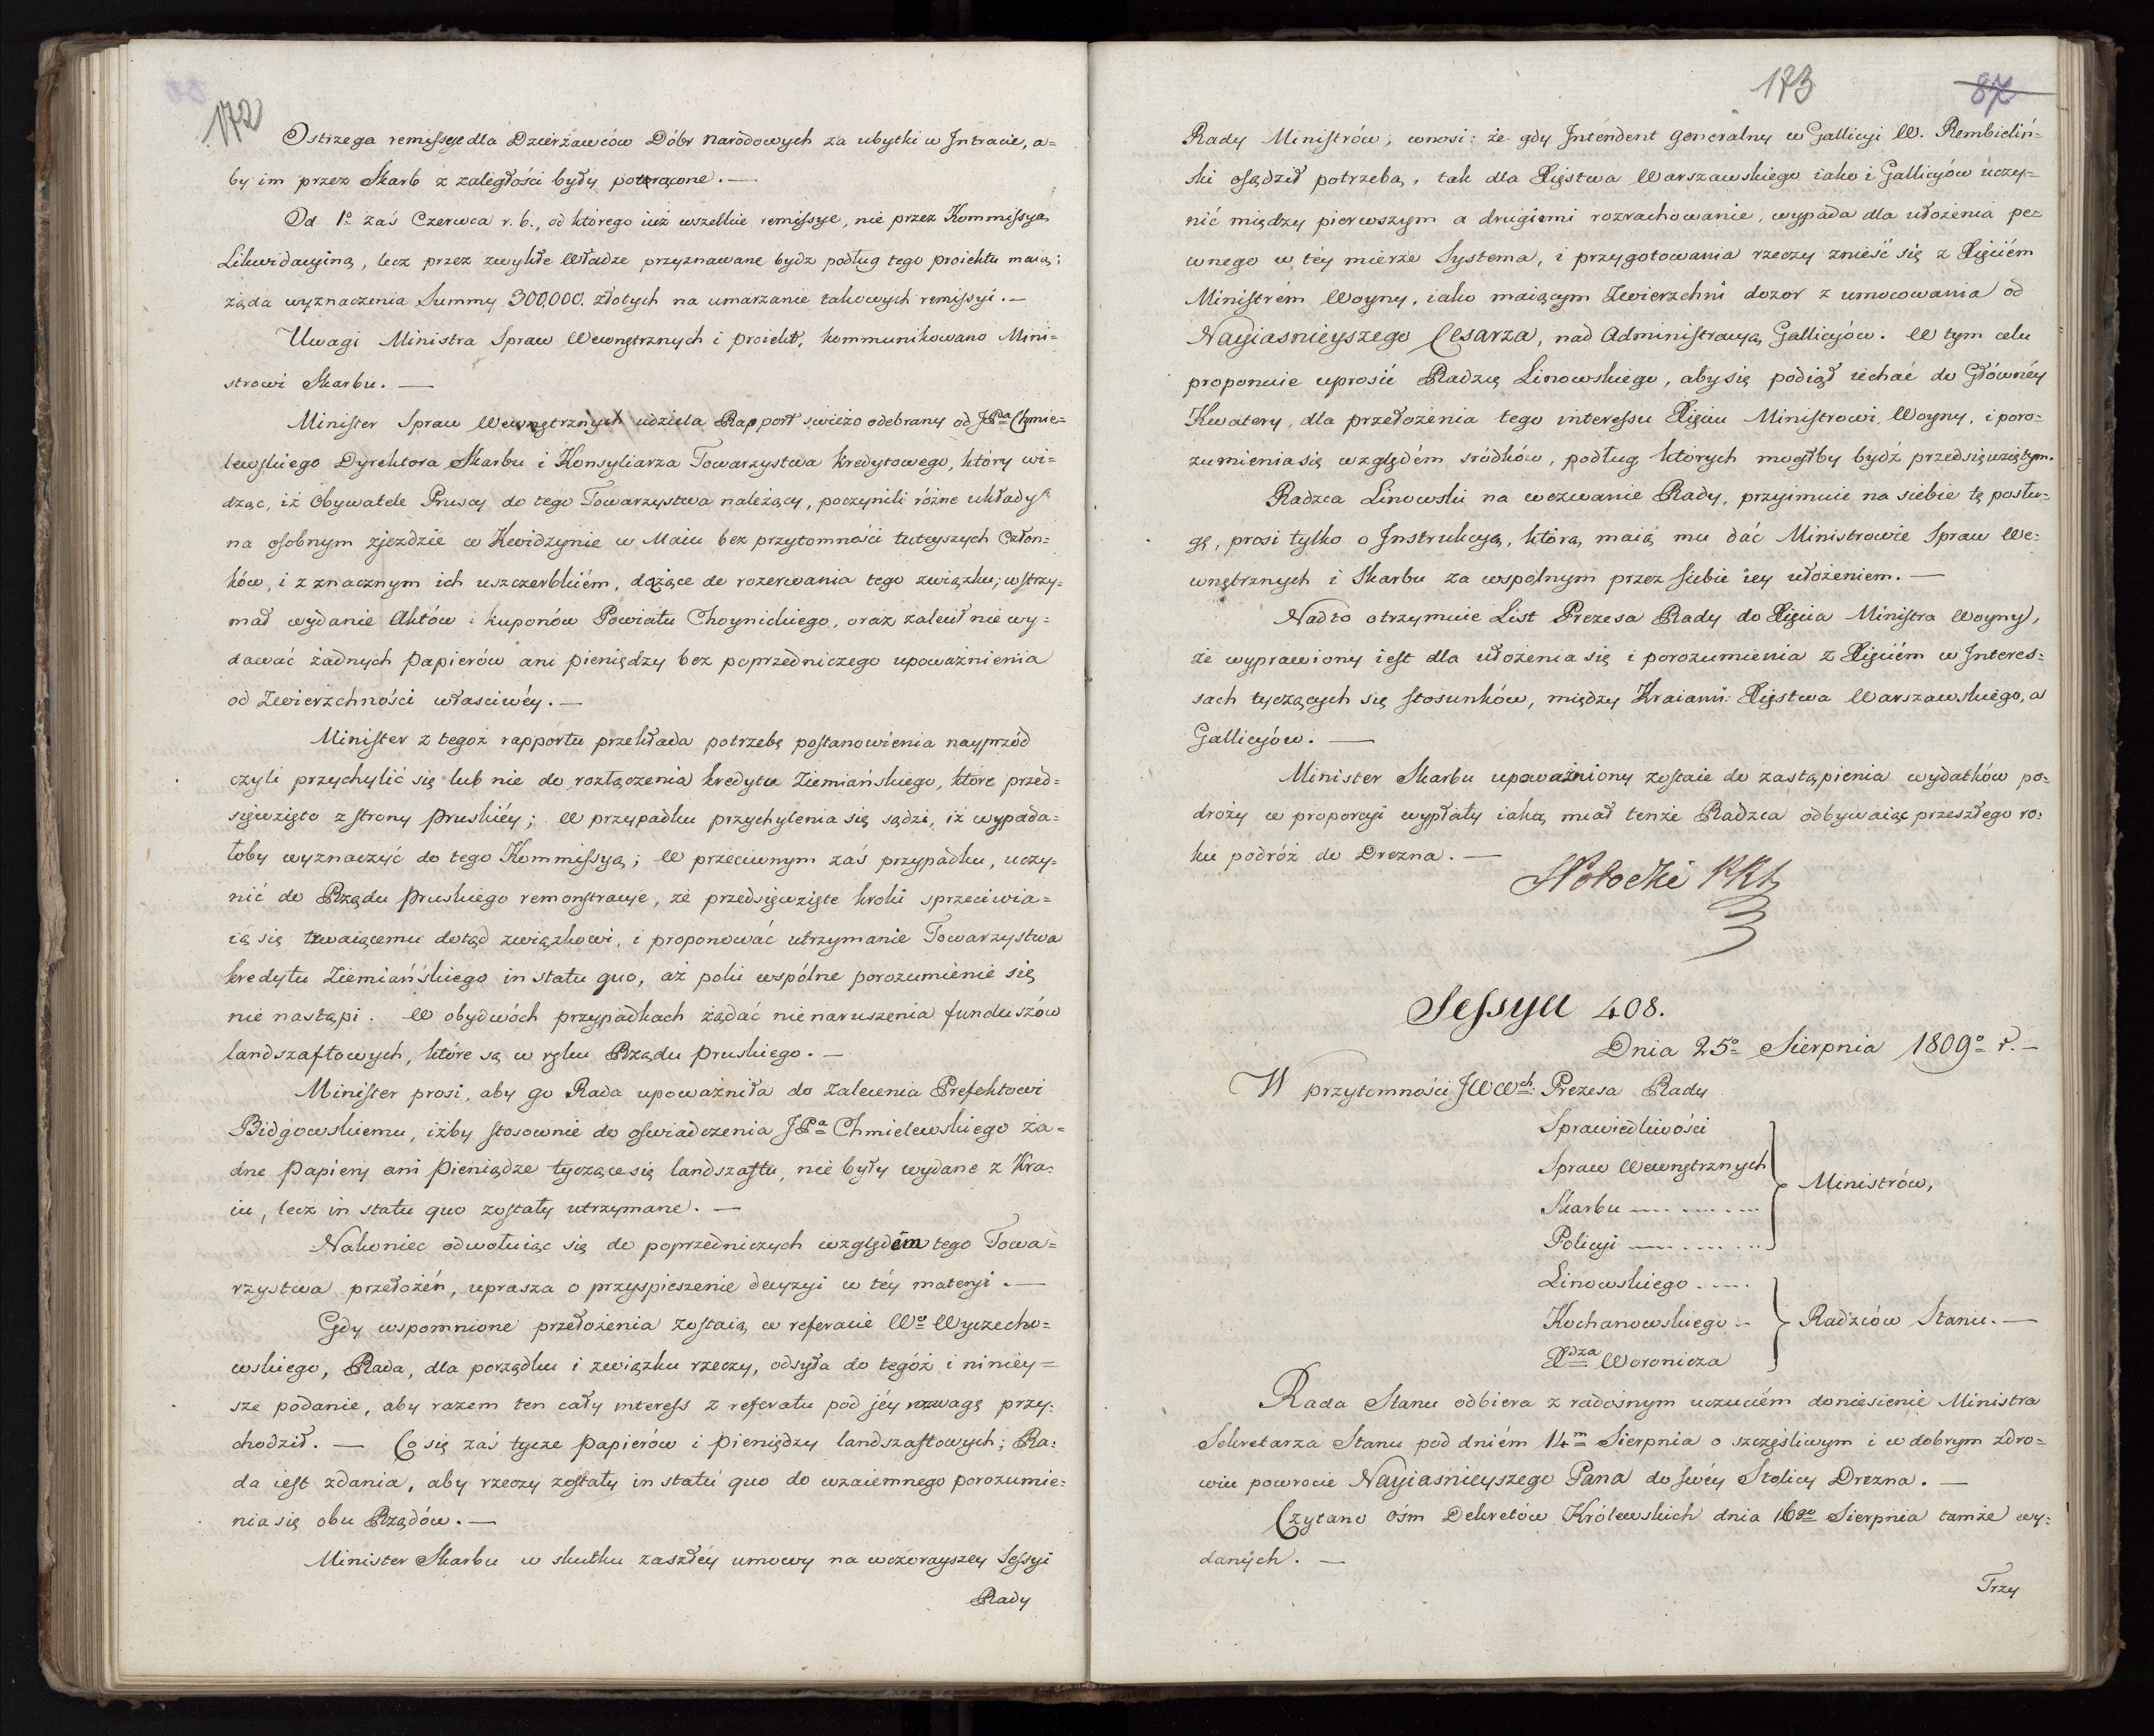 172
Ostrzega remissye dla Dzierżawców Dóbr Narodowych za ubytki w Intracie, a=
by im przez Skarb z zaległości były potrącone. —
Od 1o zaś Czerwca r. b., od którego iuż wszelkie remissye, nie przez Kommissyą
Likwidacyiną, lecz przez zwykłe Władze przyznawane bydz podług tego proiektu maią;
żąda wyznaczenia Summy 300,000. złotych na umarzanie takowych remissyi. —
Uwagi Ministra Spraw Wewnętrznych i proiekt, kommunikowano Mini=
strowi Skarbu. —
Minister Spraw Wewnętrznych udziela Rapport swieżo odebrany od JPa Chmie=
lewskiego Dyrektora Skarbu i Konsyliarza Towarzystwa Kredytowego, który wi=
dząc, iż Obywatele Pruscy do tego Towarzystwa należący, poczynili różne układy
na osobnym zjezdzie w Kwidzynie w Maiu bez przytomności tuteyszych Człon=
ków, i z znacznym ich uszczerbkiém, dążące do rozerwania tego związku; wstrzy=
mał wydanie Aktów i kuponów Powiatu Choynickiego, oraz zalecił nie wy=
dawać żadnych papierów ani pieniędzy bez poprzedniczego upoważnienia
od Zwierzchności własciwéy. —
Minister z tegoż rapportu przekłada potrzebę postanowienia nayprzód
czyli przychylić się lub nie do rozłączenia kredytu Ziemiańskiego, które przed=
sięwzięto z strony pruskiéy; W przypadku przychylenia się sądzi, iż wypada=
łoby wyznaczyć do tego Kommissyą; W przeciwnym zaś przypadku, uczy=
nić do Rządu pruskiego remonstracye, że przedsięwzięte kroki sprzeciwia=
ią się trwaiącemu dotąd związkowi, i proponować utrzymanie Towarzystwa
kredytu Ziemiańskiego in statu quo, aż poki wspólne porozumienie się
nie nastąpi. W obydwóch przypadkach żądać nienaruszenia funduszów
landszaftowych, które są w ręku Rządu pruskiego. —
Minister prosi, aby go Rada upoważniła do zalecenia Prefektowi
Bidgowskiemu, iżby stosownie do oświadczenia JPa Chmielewskiego ża=
dne papiery ani pieniądze tyczące się landszaftu, nie były wydane z Kra=
iu, lecz in statu quo zostały utrzymane. —
Nakoniec odwołuiąc się do poprzedniczych względém tego Towa=
rzystwa przełożéń, uprasza o przyspieszenie decyzyi w téy materyi. —
Gdy wspomnione przełożenia zostaią w referacie Wo Wyczecho=
wskiego, Rada, dla porządku i związku rzeczy, odsyła do tegóż i niniey=
sze podanie, aby razem ten cały interess z referatu pod jéy rozwagę przy=
chodził. — Co się zaś tycze papierów i pieniędzy landszaftowych; Ra=
da iest zdania, aby rzeczy zostały in statu quo do wzaiemnego porozumie=
nia się obu Rządów. —
Minister Skarbu w skutku zaszłéy umowy na wczorayszey Sessyi
Rady
173
87
Rady Ministrów; wnosi: że gdy Intendent generalny w Gallicyi W. Rembieliń=
ski osądził potrzebą, tak dla Xięstwa Warszawskiego iako i Gallicyów uczy=
nić między pierwszym a drugiemi rozrachowanie, wypada dla ułożenia pe=
wnego w téy mierze Systema, i przygotowania rzeczy znieść się z Xięciém
Ministrém Woyny, iako maiącym Zwierzchni dozor z umocowania od
Nayiasnieyszego Cesarza, nad Administracyą Gallicyów. W tym celu
proponuie uprosić Radzcę Linowskiego, aby się podiął iechać do Głównéy
Kwatery, dla przełożenia tego interessu Xięciu Ministrowi Woyny, i poro=
zumienia się względém sródków, podług których mogłby bydź przedsięwziętym.
Radzca Linowski na wezwanie Rady, przyimuie na siebie tę posłu=
gę, prosi tylko o Instrukcyą, którą maią mu dać Ministrowie Spraw We=
wnętrznych i Skarbu za wspolnym przez siebie iey ułożeniem. —
Nadto otrzymuie List Prezesa Rady do Xięcia Ministra Woyny,
że wyprawiony iest dla ułożenia się i porozumienia z Xięciém w Interes=
sach tyczących się stosunków, między Kraiami Xięstwa Warszawskiego, a
Gallicyów. —
Minister Skarbu upoważniony zostaie do zastąpienia wydatków po=
droży w proporcyi wypłaty iaką miał tenże Radzca odbywaiąc przeszłego ro=
ku podróż do Drezna. —
Sessya 408.
Dnia 25o Sierpnia 1809o r. —
W przytomności JWWch: Prezesa Rady
Sprawiedliwości
Spraw Wewnętrznych
Skarbu
Policyi
Ministrów,
Linowskiego
Kochanowskiego
Xdza Woronicza
Radzców Stanu. —
Rada Stanu odbiera z radosnym uczuciém doniesienie Ministra
Sekretarza Stanu pod dniém 14m Sierpnia o szczęśliwym i w dobrym zdro=
wiu powrocie Nayiasnieyszego Pana do swéy Stolicy Drezna. —
Czytano ośm Dekretów Królewskich dnia 16go Sierpnia tamże wy=
danych. —
Trzy